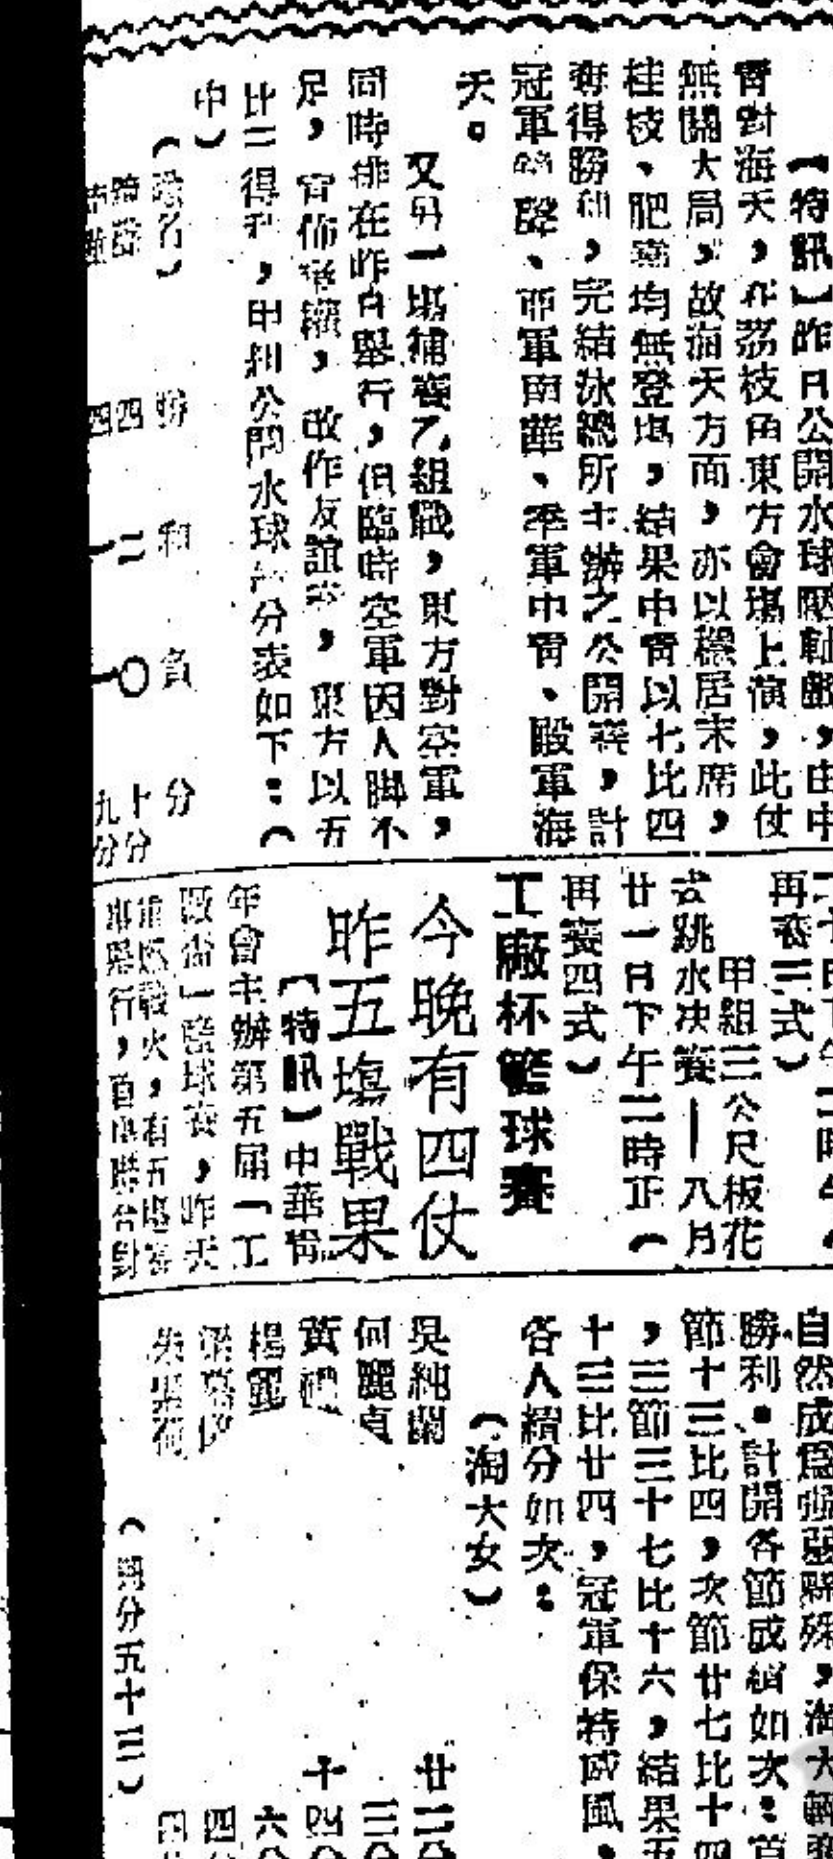 【特訊】昨日公開水球壓軸戲，由中
青對海天，在荔枝角東方會塲上演，此仗
無關大局，故海天方面，亦以穩居末席，
桂枝、肥燕均無登塲，結果中青以七比四
奪得勝利，完結泳總所主辦之公開賽，計
冠軍、亞軍南華、季軍中青、殿軍海
天。
又另一塲補賽乙組戰，東方對空軍，
同時排在昨日舉行，但臨時空軍因人脚不
足，宣佈棄權，改作友誼賽，東方以五
比二得利，甲組公開水球分表如下：（
中）
（隊名） 勝 和 負 分
四 二 〇 十分
四 一 一 九分
二時
再賽三式）
甲組三公尺板花
式跳水决賽—八月
廿一日下午二時正（
再賽四式）
工廠杯籃球賽
今晚有四仗
昨五塲戰果
【特訊】中華青
年會主辦第五屆「工
廠盃」籃球賽，昨天
戰火，有五塲賽
舉行，首塲聯合對
自然成爲强弱懸殊，淘大
勝利。計開各節成績如次：首
節十三比四，次節廿七比十四
，三節三十七比十六，結果五
十三比廿四，冠軍保持威風，
各人績分如次：
（淘大女）
吳純 廿二分
何麗貞 三分
黃 十四分
楊 六分
梁 四分
朱
（共分五十三）